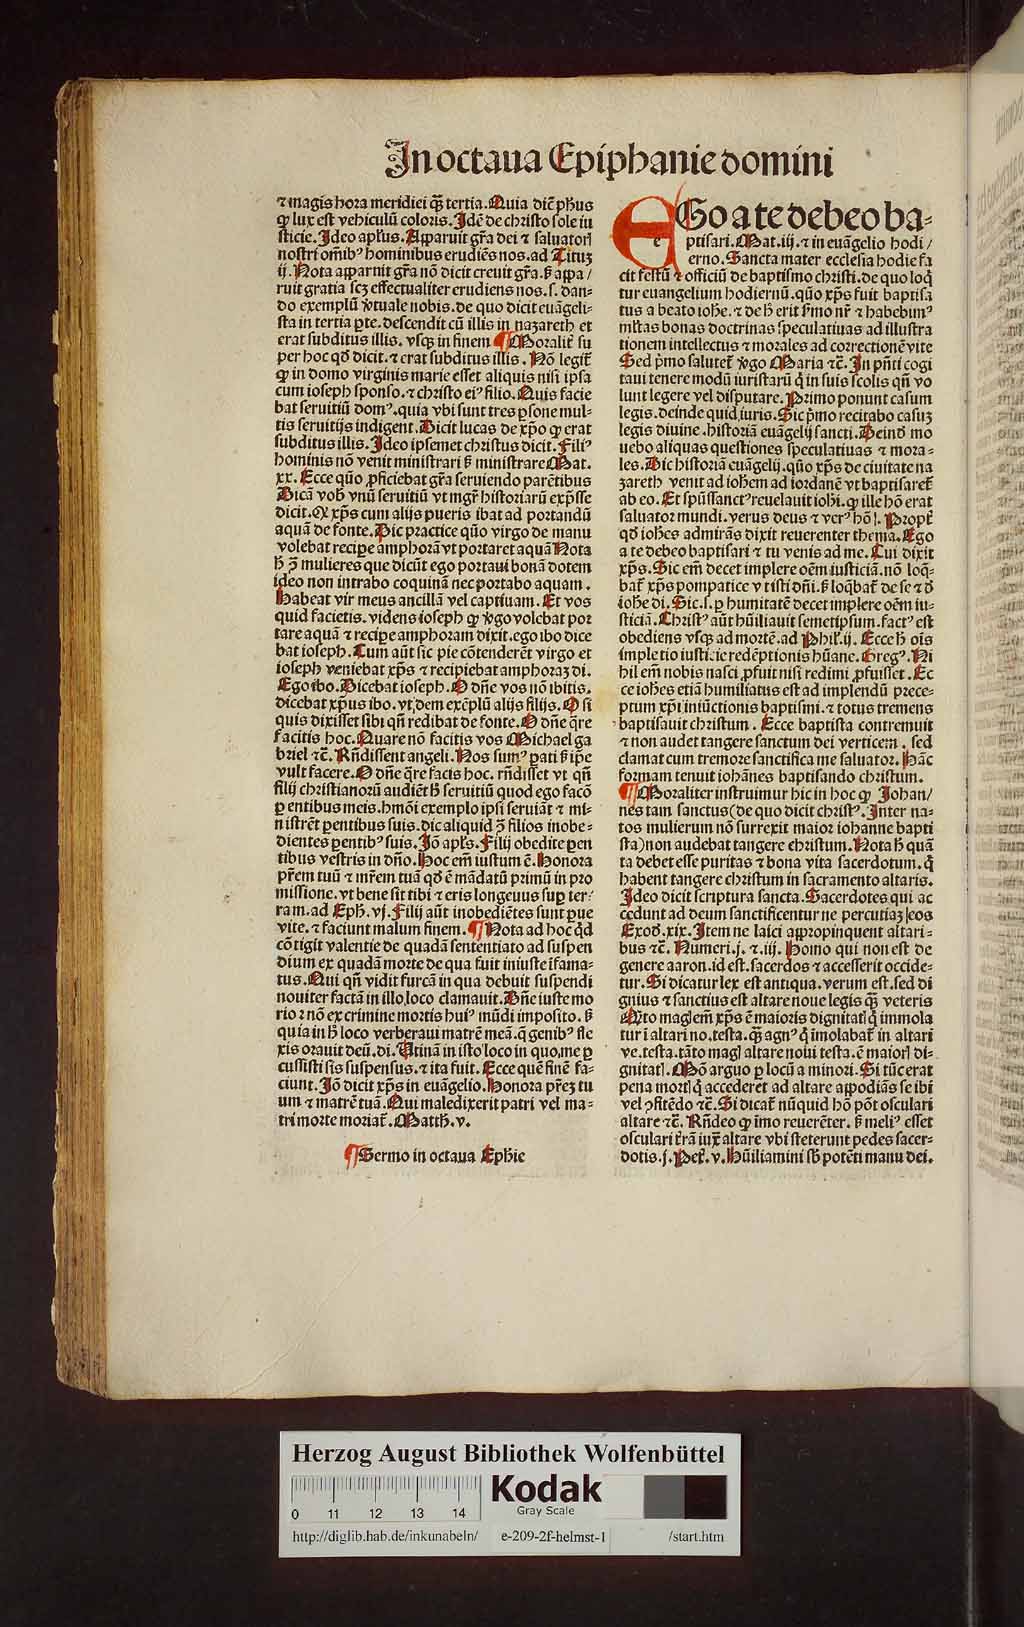 In octaua Epiphanie domini
⁊ magis hora meridiei qȝ tertia. Quia diẽ pħus
ꝙ lux est vehiculũ coloris. Idẽ de christo sole iu
sticie. Ideo apłus. Apparuit gr̃a dei ⁊ saluatorꝭ
nostri om̃ibꝰ hominibus erudiẽs nos. ad Tituȝ
ij. Nota apparuit gr̃a nõ dicit creuit gr̃a. ß appa/
ruit gratia scȝ effectualiter erudiens nos. s. dan-
do exemplũ v̓tuale nobis. de quo dicit euãgeli-
sta in tertia ꝑte. descendit cũ illis in nazareth et
erat subditus illis. vsqȝ in finem ¶ Moralit̃ su
per hoc qď dicit. ⁊ erat subditus illis. Nõ legit̃
ꝙ in domo virginis marie esset aliquis nisi ipsa
cum ioseph sponso. ⁊ christo eiꝰ filio. Quis facie
bat seruitiũ domꝰ. quia vbi sunt tres ꝑsone mul-
tis seruitijs indigent. Dicit lucas de xp̃o ꝙ erat
subditus illis. Ideo ipsemet christus dicit. Filiꝰ
hominis nõ venit ministrari ß ministrare Mat.
xx. Ecce quõ ꝓficiebat gr̃a seruiendo parẽtibus
Dicã vob̃ vnũ seruitiũ vt mgr̃ historiarũ exp̃sse
dicit. Qꝛ xp̃s cum alijs pueris ibat ad portandũ
aquã de fonte. Dic practice quõ virgo de manu
volebat recipe amphorã vt portaret aquã Nota
ħ ↄ̃ mulieres que dicũt ego portaui bonã dotem
ideo non intrabo coquinã nec portabo aquam.
Habeat vir meus ancillã vel captiuam. Et vos
quid facietis. videns ioseph ꝙ v̓go volebat por
tare aquã ⁊ recipe amphoram dixit. ego ibo dice
bat ioseph. Cum aũt sic pie cõtenderẽt virgo et
ioseph veniebat xp̃s ⁊ recipiebat amphoraȝ di.
Ego ibo. Dicebat ioseph. O dñe vos nõ ibitis.
dicebat xp̃us ibo. vt dem exẽplũ alijs filijs. O si
quis dixisset sibi qñ redibat de fonte. O dñe q̃re
facitis hoc. Quare nõ facitis vos Michael ga
briel ⁊c̃. Rñdissent angeli. Nos sumꝰ ꝑati ß ip̃e
vult facere. O dñe q̃re facis hoc. rñdisset vt qñ
filij christianorũ audiẽt ħ seruitiũ quod ego facõ
ꝑentibus meis. hmõi exemplo ipsi seruiãt ⁊ mi-
nistrẽt ꝑentibus suis. dic aliquid ↄ̃ filios inobe-
dientes ꝑentibꝰ suis. Iõ apłs. Filij obedite ꝑen
tibus vestris in dño. Hoc em̃ iustum ẽ. Honora
pr̃em tuũ ⁊ mr̃em tuã qď ẽ mãdatũ primũ in pro
missione. vt bene sit tibi ⁊ eris longeuus suꝑ ter-
ram. ad Epħ. vj. Filij aũt inobediẽtes sunt ꝑue
vite. ⁊ faciunt malum finem. ¶ Nota ad hoc qď
cõtigit valentie de quadã sententiato ad suspen
dium ex quadã morte de qua fuit iniuste ĩfama-
tus. Qui qñ vidit furcã in qua debuit suspendi
nouiter factã in illo loco clamauit. Dñe iuste mo
rior nõ ex crimine mortis huiꝰ mũdi imposito. ß
quia in ħ loco verberaui matrẽ meã. q̃ genibꝰ fle
xis orauit deũ. di. Utinã in isto loco in quo me ꝑ
cussisti sis suspensus. ⁊ ita fuit. Ecce quẽ finẽ fa-
ciunt. Iõ dicit xp̃s in euãgelio. Honora pr̃eȝ tu
um ⁊ matrẽ tuã. Qui maledixerit patri vel ma-
tri morte moriat̃. Matth. v.
¶ Sermo in octaua Epħie
EGo a te debeo ba-
e
ptisari. Mat. iij. ⁊ in euãgelio hodi/
erno. Sancta mater ecclesia hodie fa
cit festũ ⁊ officiũ de baptismo christi. de quo loq̃
tur euangelium hodiernũ. quõ xp̃s fuit baptisa
tus a beato ioħe. ⁊ de ħ erit ẜmo nr̃ ⁊ habebimꝰ
mł̃tas bonas doctrinas speculatiuas ad illustra
tionem intellectus ⁊ morales ad correctionẽ vite
Sed p̃mo salutet̃ v̓go Maria ⁊c̃. In pñti cogi
taui tenere modũ iuristarũ q̃ in suis scolis qñ vo
lunt legere vel disputare. Primo ponunt casum
legis. deinde quid iuris. Sic p̃mo recitabo casuȝ
legis diuine. historiã euãgelij sancti. Deinď mo
uebo aliquas questiones speculatiuas ⁊ mora-
les. Dic historiã euãgelij. quõ xp̃s de ciuitate na
zareth venit ad ioħem ad iordanẽ vt baptisaret̃
ab eo. Et sp̃ussanctꝰ reuelauit ioħi. ꝙ ille hõ erat
saluator mundi. verus deus ⁊ verꝰ hõ. Propt̃
qď ioħes admirãs dixit reuerenter thema. Ego
a te debeo baptisari ⁊ tu venis ad me. Cui dixit
xp̃s. Sic em̃ decet implere oẽm iusticiã. nõ loq̃-
bat̃ xp̃s pompatice vt isti dñi. ß loq̃bat̃ de se ⁊ ď
ioħe di. Sic. s. ꝑ humitatẽ decet implere oẽm iu-
sticiã. Christꝰ aũt hũiliauit semetipsum. factꝰ est
obediens vsqȝ ad mortẽ. ad Phił. ij. Ecce ħ oĩs
impletio iusticie redẽptionis hũane. Gregꝰ. Ni
hil em̃ nobis nasci ꝓfuit nisi redimi ꝓfuisset. Ec
ce ioħes etiã humiliatus est ad implendũ prece-
ptum xp̃i iniũctionis baptismi. ⁊ totus tremens
baptisauit christum. Ecce baptista contremuit
⁊ non audet tangere sanctum dei verticem. sed
clamat cum tremore sanctifica me saluator. Hãc
formam tenuit iohãnes baptisando christum.
¶ Moraliter instruimur hic in hoc ꝙ Johan/
nes tam sanctus (de quo dicit christꝰ. Inter na-
tos mulierum nõ surrexit maior iohanne bapti
sta) non audebat tangere christum. Nota ħ quã
ta debet esse puritas ⁊ bona vita sacerdotum. q̃
habent tangere christum in sacramento altaris.
Ideo dicit scriptura sancta. Sacerdotes qui ac
cedunt ad deum sanctificentur ne percutiaȝ eos
Exoď. xix. Item ne laici appropinquent altari-
bus ⁊c̃. Numeri. j. ⁊ iij. Homo qui non est de
genere aaron. id est. sacerdos ⁊ accesserit occide-
tur. Si dicatur lex est antiqua. verum est. sed di
gnius ⁊ sanctius est altare noue legis qȝ̃ veteris
Q̃to magꝭ em̃ xp̃s ẽ maioris dignitatꝭ q̃ immola
tur i altari no. testa. qȝ̃ agnꝰ q̃ imolabat̃ in altari
ve. testa. tãto magꝭ altare noui testa. ẽ maiorꝭ di-
gnitatꝭ. Mõ arguo ꝑ locũ a minori. Si tũc erat
pena mortꝭ q̃ accederet ad altare appodiãs se ibi
vel ↄfitẽdo ⁊c̃. Si dicat̃ nũquid hõ põt osculari
altare ⁊c̃. Rñdeo ꝙ imo reuerẽter. ß meliꝰ esset
osculari t̃rã iuxͣ altare vbi steterunt pedes sacer-
dotis. j. Pet̃. v. Hũiliamini sƀ potẽti manu dei.
Herzog August Bibliothek Wolfenbüttel
0 11 12 13 14
Kodak
Gray Scale
http://diglib.hab.de/inkunabeln/ e-209-2f-helmst-1 /start.htm